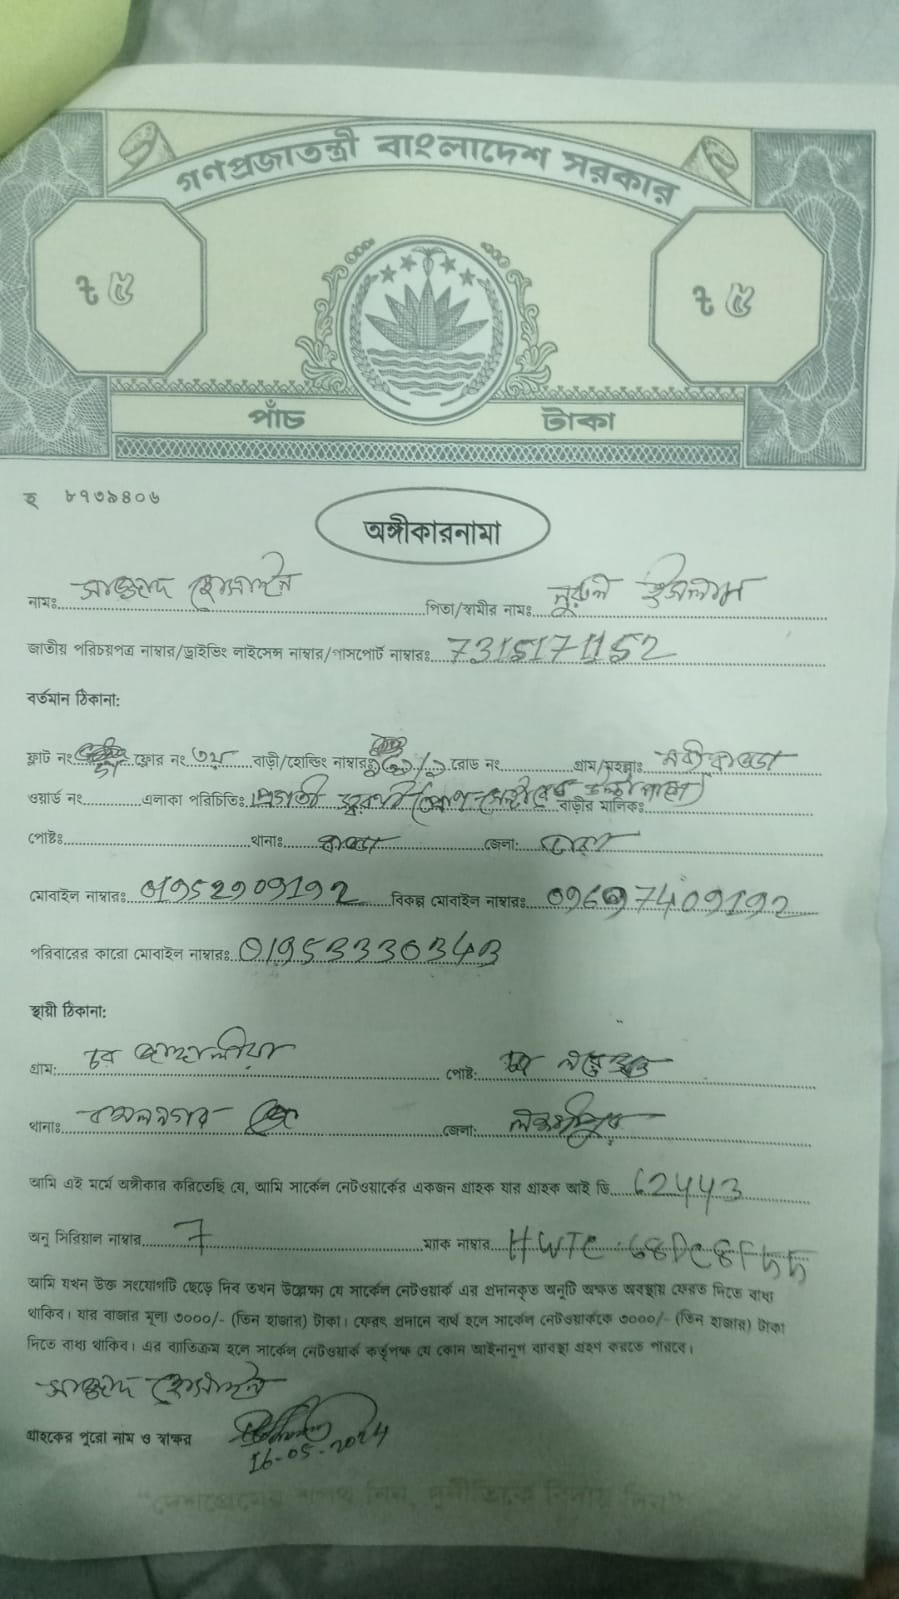 গণপ্রজাতন্ত্রী বাংলাদেশ সরকার
৳ ৫ ৳ ৫
পাঁচ টাকা
হ ৮৭৩৯৪০৬
অঙ্গীকারনামা
নামঃ সাজ্জাদ হোসাইন পিতা/স্বামীর নাম: নুরুল ইসলাম
জাতীয় পরিচয়পত্র নাম্বার/ড্রাইভিং লাইসেন্স নাম্বার/পাসপোর্ট নাম্বারঃ 7315171152
বর্তমান ঠিকানা:
ফ্লাট নং ফ্লোর নং ৩য় বাড়ী/হোল্ডিং নাম্বারঃ রোড নং গ্রাম/মহল্লাঃ
ওয়ার্ড নং এলাকা পরিচিতিঃ প্রগতী স্বরণী বাড়ীর মালিকঃ
পোষ্টঃ থানাঃ বাড্ডা জেলা: ঢাকা
মোবাইল নাম্বারঃ 01952909192 বিকল্প মোবাইল নাম্বারঃ
পরিবারের কারো মোবাইল নাম্বারঃ 01953330343
স্থায়ী ঠিকানা:
গ্রাম: চর পোষ্ট: চর
থানাঃ কমলনগর জেলা: লক্ষ্মীপুর
আমি এই মর্মে অঙ্গীকার করিতেছি যে, আমি সার্কেল নেটওয়ার্কের একজন গ্রাহক যার গ্রাহক আই ডি 62443
অনু সিরিয়াল নাম্বার 7 ম্যাক নাম্বার HWTC
আমি যখন উক্ত সংযোগটি ছেড়ে দিব তখন উল্লেক্ষ্য যে সার্কেল নেটওয়ার্ক এর প্রদানকৃত অনুটি অক্ষত অবস্থায় ফেরত দিতে বাধ্য
থাকিব। যার বাজার মূল্য ৩০০০/- (তিন হাজার) টাকা। ফেরৎ প্রদানে ব্যর্থ হলে সার্কেল নেটওয়ার্ককে ৩০০০/- (তিন হাজার) টাকা
দিতে বাধ্য থাকিব। এর ব্যতিক্রম হলে সার্কেল নেটওয়ার্ক কর্তৃপক্ষ যে কোন আইনানুগ ব্যবস্থা গ্রহণ করতে পারবে।
সাজ্জাদ হোসাইন
গ্রাহকের পুরো নাম ও স্বাক্ষর
16-05-2024
"দেশপ্রেমের শপথ নিন, দুর্নীতিকে বিদায় দিন"